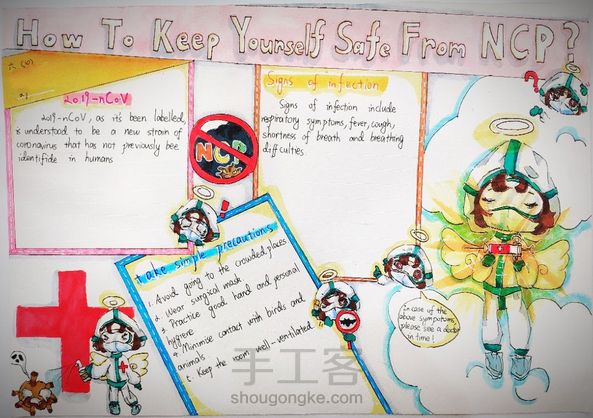 How To Keep Yourself Safe From NCP?
六(10)
2019-nCoV
2019-nCoV, as it's been labelled,
is understood to be a new strain of
coronavirus that has not previously bee
identifide in humans
NCP
Signs of infection
Signs of infection include
respiratory symptoms, fever, cough,
shortness of breath and breathing
difficulties.
?
!
take simple precautions
1. Avoid going to the crowded places
2. Wear surgical mask
3. Practice good hand and personal
hygiene
4. Minimise contact with birds and
animals
5. Keep the room well-ventilated
In case of the
above symptoms,
please see a doctor
in time!
手工客
shougongke.com